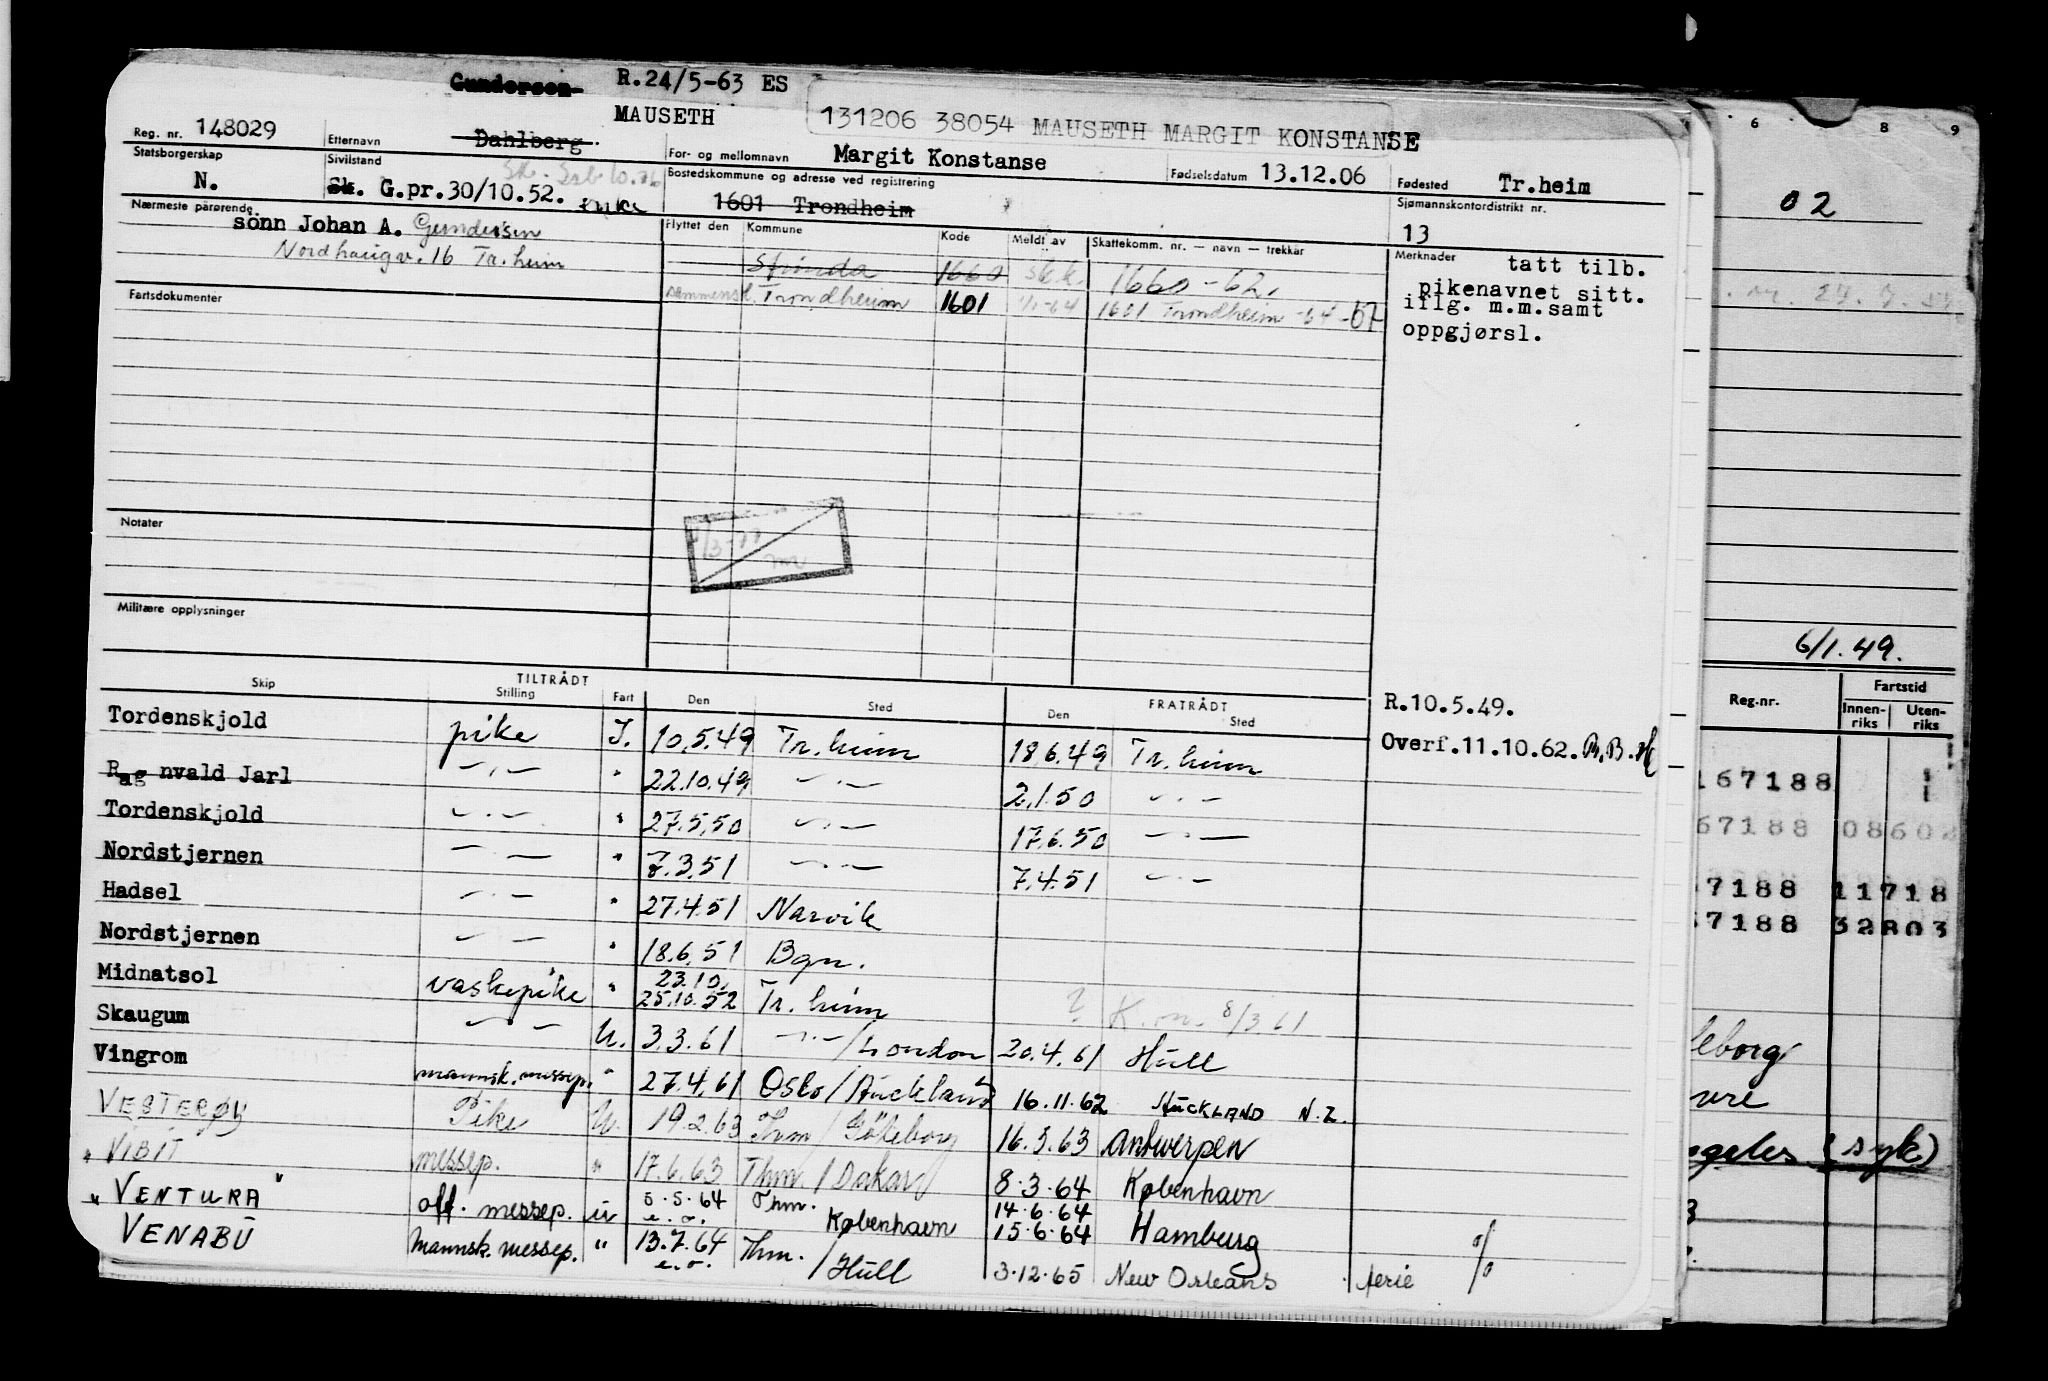 Gundersen R.24/5-63 ES
MAUSETH 131206 38054 MAUSETH MARGIT KONSTANSE
Reg. nr. 148029 Etternavn Dahlberg For- og mellomnavn Margit Konstanse Fødselsdatum 13.12.06 Fødested Tr.heim
Statsborgerskap N. Sivilstand Sk. G.pr.30/10.52. enke Bostedskommune og adresse ved registrering 1601 Trondheim Sjømannskontordistrikt nr. 13
Nærmeste pårørende sönn Johan A. Gundersen
Nordhaugv. 16 Tr.heim
Flyttet den Kommune Kode Meldt av Skattekomm. nr. — navn — trekkår
Strinda 1660 sk.k. 1660-62.
sammensl. Trondheim 1601 1/1-64 1601 Trondheim -64-67
Merknader tatt tilb.
pikenavnet sitt.
iflg. m.m.samt
oppgjørsl.
Fartsdokumenter
Notater
Militære opplysninger
TILTRÅDT FRATRÅDT
Skip Stilling Fart Den Sted Den Sted
R.10.5.49.
Overf.11.10.62.
Tordenskjold pike I. 10.5.49 Tr.heim 18.6.49 Tr.heim
Ragnvald Jarl —"— " 22.10.49 —"— 2.1.50 —"—
Tordenskjold —"— " 27.5.50 —"— 17.6.50 —"—
Nordstjernen —"— " 7.3.51 —"— 7.4.51 —"—
Hadsel —"— " 27.4.51 Narvik
Nordstjernen —"— " 18.6.51 Bgn.
Midnatsol vaskepike " 23.10. 25.10.52 Tr.heim ? K.m. 8/3 61
Skaugum —"— U. 3.3.61 —"—/London 20.4.61 Hull
Vingrom mannsk.messep. " 27.4.61 Oslo/Auckland 16.11.62 AUCKLAND N.Z.
VESTERØY Pike U. 19.2.63 Thm/Göteborg 16.3.63 Antwerpen
"VIBIT messep. " 17.6.63 Thm./Dakar 8.3.64 København
"VENTURA" off. messep. u 5.5.64 e.o. Thm. København 14.6.64 15.6.64 Hamburg %
VENABU mannsk.messep. " 13.7.64 e.o. Thm./Hull 3.12.65 New Orleans ferie
6 8 9
02
6/1.49.
Reg.nr. Fartstid
Innen-riks Uten-riks
167188
67188 08602
7188 11718
7188 32803
(syk)